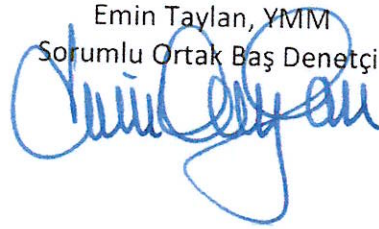 Emin Taylan, YMM
Sorumlu Ortak Baş Denetçi